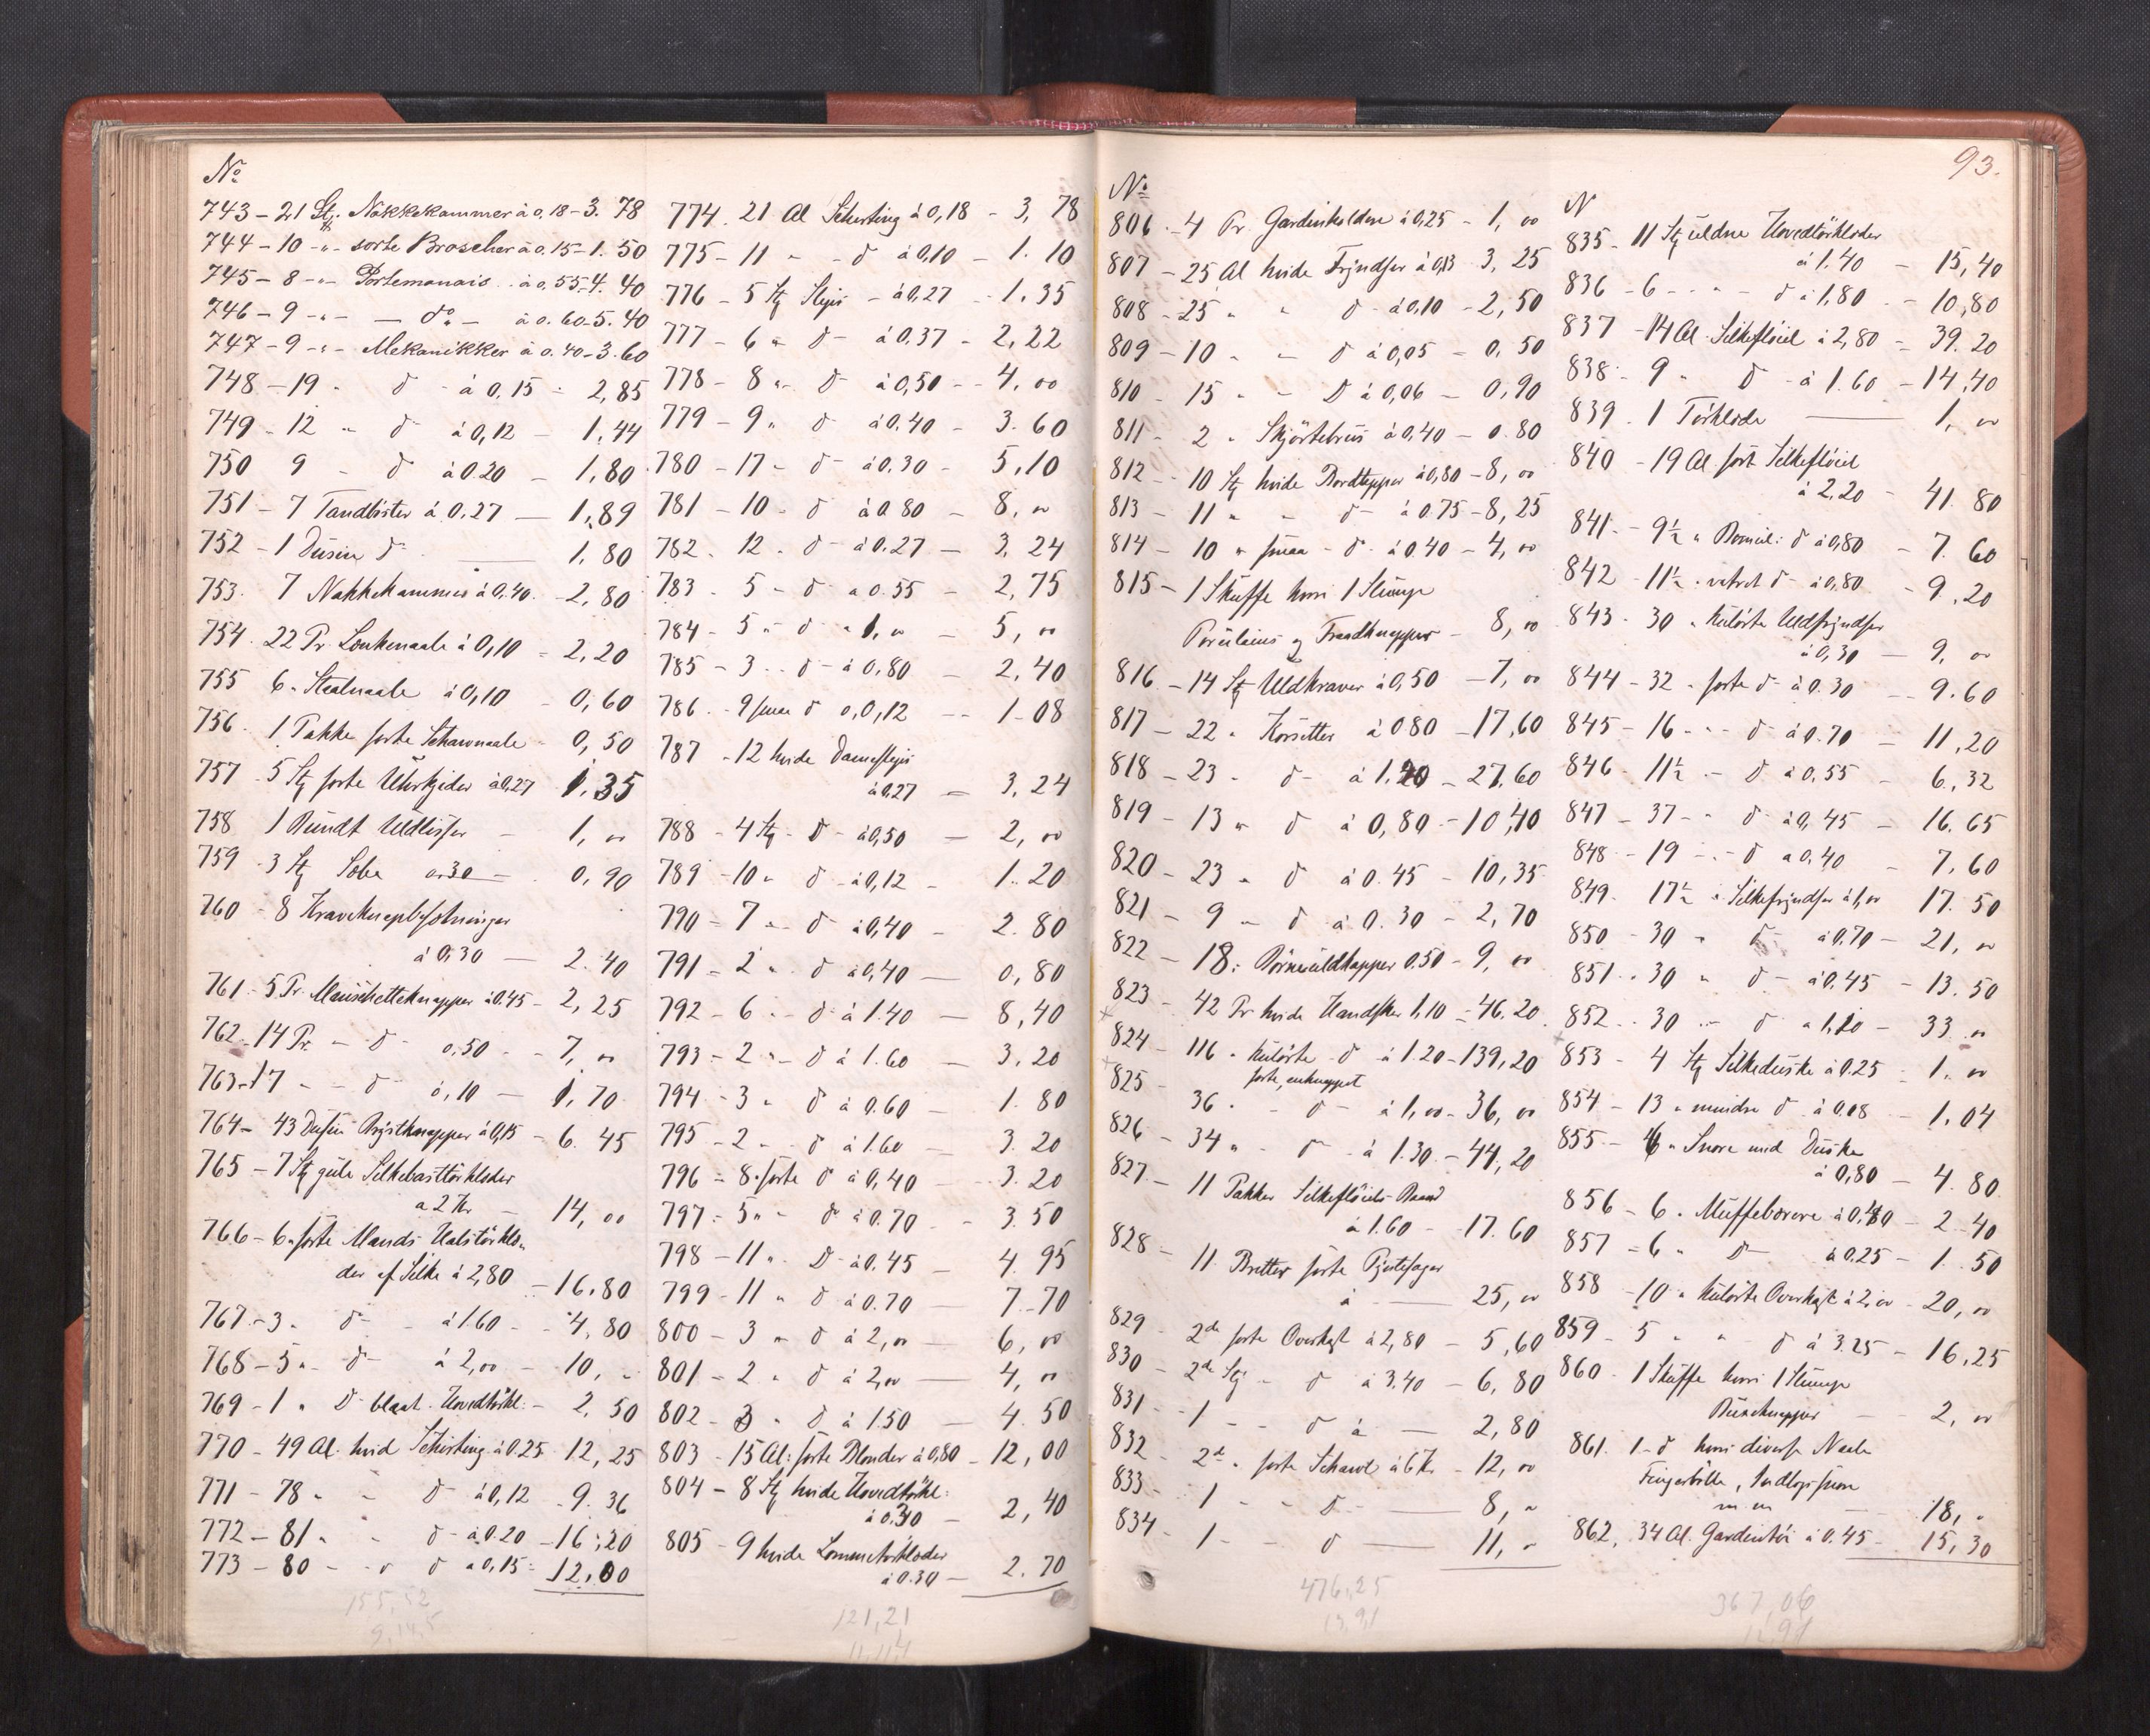 No
743 - 21 Stj. Nakkekammer à 0,18 - 3. 78
744 - 10 -„- sorte Broscher à 0.15 - 1. 50
745 - 8 -„- Portemonais à 0.55 - 4. 40
746 - 9 -„- — do - à 0.60 - 5. 40
747 - 9 -„- Mekanikker à 0.40 - 3.60
748 - 19 - d à 0,15 - 2,85
749 - 12 - d à 0,12 - 1,44
750 9 - d à 0.20 - 1,80
751 - 7 Tandbøster à 0.27 — 1,89
752 - 1 Dusin d — 1,80
753. 7 Nakkekammer à 0,40. - 2,80
754. 22 Pr. à 0,10 - 2,20
755 6 „ à 0,10 - 0,60
756. 1 Pakke sorte - 0,50
757 - 5 Stj sorte Uhrkjeder à 0,27 1.35
758 1 Bundt Uldlisser - 1, „
759 - 3 Stj Sæbe 0.30 — 0,90
760 - 8
à 0,30 — 2.40
761 - 5 Pr. Manschetteknapper à 0.45 - 2,25
762 - 14 Pr. - d - 0,50 - 7, „
763 - 17 - - d 0,10 — 1,70
764 - 43 Dusin Brystknapper à 0,15 - 6.45
765 - 7 Stj gule Silkebasttørklæder
a 2 Kr. - 14, 00
766 - 6 „ sorte Mands Halstørklæ-
der af Silke à 2,80 - 16.80
767 - 3 „ d - à 1.60 - 4,80
768 - 5 „ d - à 2,00 - 10, „
769 - 1 „ D blaat Hovedtørkl: - 2,50
770 - 49 Al. hvid Schirting à 0.25 12,25
771 - 78 „ - d à 0,12 - 9.36
772 - 81 „ - d - à 0.20 - 16,20
773 - 80 - - d à 0,15 - 12,00
155,52
774. 21 Al Schirting à 0,18 - 3,78
775 - 11 „ - d à 0,10 - 1.10
776 - 5 Stj Slips - à 0,27 - 1.35
777 - 6 „ d - à 0.37 - 2,22
778 - 8 „ D - à 0,50 - 4, 00
779 - 9 „ d à 0.40 - 3.60
780 - 17 - d - à 0.30 - 5,10
781 - 10 - d à 0.80 - 8, „
782 - 12 - d - à 0.27 — 3,24
783 - 5 - d a 0.55 - 2,75
784 - 5 „ d „ 1, „ — 5, 00
785 - 3 - d - à 0,80 - 2,40
786 - 9 smaa d 0,12 - 1-08
787 - 12 hvide Dameslips
à 0.27 — 3,24
788 - 4 Stj - D - à 0,50 — 2, 00
789 - 10 „ d - à 0,12 - 1.20
790 - 7 „ d à 0,40 - 2.80
791 - 2 „ d à 0,40 — 0,80
792 - 6 - d à 1.40 — 8,40
793 - 2 „ - d à 1.60 — 3,20
794 - 3 „ d à 0.60 - 1.80
795 - 2 - d à 1.60 — 3.20
796 - 8 „ sorte d à 0,40 - 3.20
797 - 5 „ - d à 0.70 - 3.50
798 - 11 „ D à 0.45 - 4.95
799 - 11 „ d à 0.70 7-70
800 - 3 „ d à 2, „ — 6, 00
801 - 2 „ d à 2, „ — 4, „
802 - 3 „ d à 1.50 — 4.50
803 - 15 Al: sorte Blonder à 0,80 - 12,00
804 - 8 Stj hvide Hovedtørkl:
à 0.30 — 2,40
805 - 9 hvide Lommetørklæder
à 0.30 — 2.70
121,21
93.
No
806 - 4 Pr. Gardinholdere à 0,25 - 1, 00
807 - 25 Al hvide Fryndser à 0,13 3,25
808 - 25 „ „ d - à 0,10 - 2,50
809 - 10 „ - d à 0,05 - 0,50
810 - 15 „ - D à 0,06 - 0,90
811 - 2 „ à 0,40 - 0.80
812 - 10 Stj hvide Bordtepper à 0,80 - 8, 00
813 - 11 „ - d - à 0.75 - 8,25
814 - 10 „ smaa - d - à 0.40 - 4, 00
815 - 1 Skuffe hvori 1 Slump
Porcelains og - 8, 00
816 - 14 Stj Uldkraver à 0,50 - 7, 00
817 - 22 „ Korsetter à 0.80 - 17,60
818 - 23 - d - à 1.20 - 27,60
819 - 13 „ d à 0,80 - 10,40
820 - 23 „ d à 0.45 - 10,35
821 - 9 - d à 0.30 - 2,70
822 - 18: Børneuldkapper 0.50 - 9, 00
823 - 42 Pr hvide Handsker 1,10 - 46.20
824 - 116 „ kulørte - d à 1.20 - 139,20
825 - sorte, enknappet
36 „ - d - à 1,00 - 36, 00
826 - 34 „ - d - à 1.30 - 44,20
827 - 11 Pakker Silkefløiels Baand
à 1.60 - 17.60
828 - 11 Bretter sorte
à — 25, 00
829 - 2de sorte à 2,80 - 5,60
830 - 2de Stj - d à 3.40 - 6,80
831 - 1 - - d à — 2,80
832 - 2de „ sorte Schawl à 6 Kr. - 12, 00
833 - 1 - - D - — 8, „
834 - 1 - d — 11, „
476,25
No
835 - 11 Stj uldne Hovedtørklæder
à 1.40 - 15,40
836 - 6 - „ - d à 1,80 - 10,80
837 - 14 Al. Silkefløiel à 2,80 - 39.20
838 - 9 „ D - à 1.60 - 14,40
839 - 1 Tørklæde — 1, 00
840 - 19 Al sort Silkefløiel
à 2,20 - 41.80
841 - 9½ „ Bomuld: d à 0,80 - 7.60
842 - 11½ „ d - à 0,80 - 9.20
843 - 30 „ kulørte Uldfryndser
à 0,30 — 9, 00
844 - 32 „ sorte d - à 0.30 - 9.60
845 - 16 - - d - à 0.70 — 11,20
846 - 11½ - D à 0,55 - 6,32
847 - 37 - - d - à 0,45 - 16.65
848 - 19 - - d à 0.40 - 7.60
849 - 17½ „ Silkefryndser à 1,00 17.50
850 - 30 „ d - à 0.70 - 21, „
851 - 30 „ d - à 0.45 - 13.50
852 - 30 - d à 1,10 - 33 „
853 - 4 Stj Silkeduske à 0.25 - 1. 00
854 - 13 „ mindre d - à 0.08 - 1.04
855 - 6 „ Snore med Duske
à 0,80 - 4.80
856 - 6 „ à 0,40 - 2-40
857 - 6 „ D - à 0.25 - 1.50
858 - 10 „ kulørte à 2, 00 - 20, 00
859 - 5 „ „ d à 3.25 - 16,25
860 - 1 Skuffe hvori 1 Slump
- 2, 00
861. 1 - d hvori diverse Naale
Fingerbølle,
m m - 18, „
862. 34 Al. Gardintøi à 0.45 - 15,30
367,06